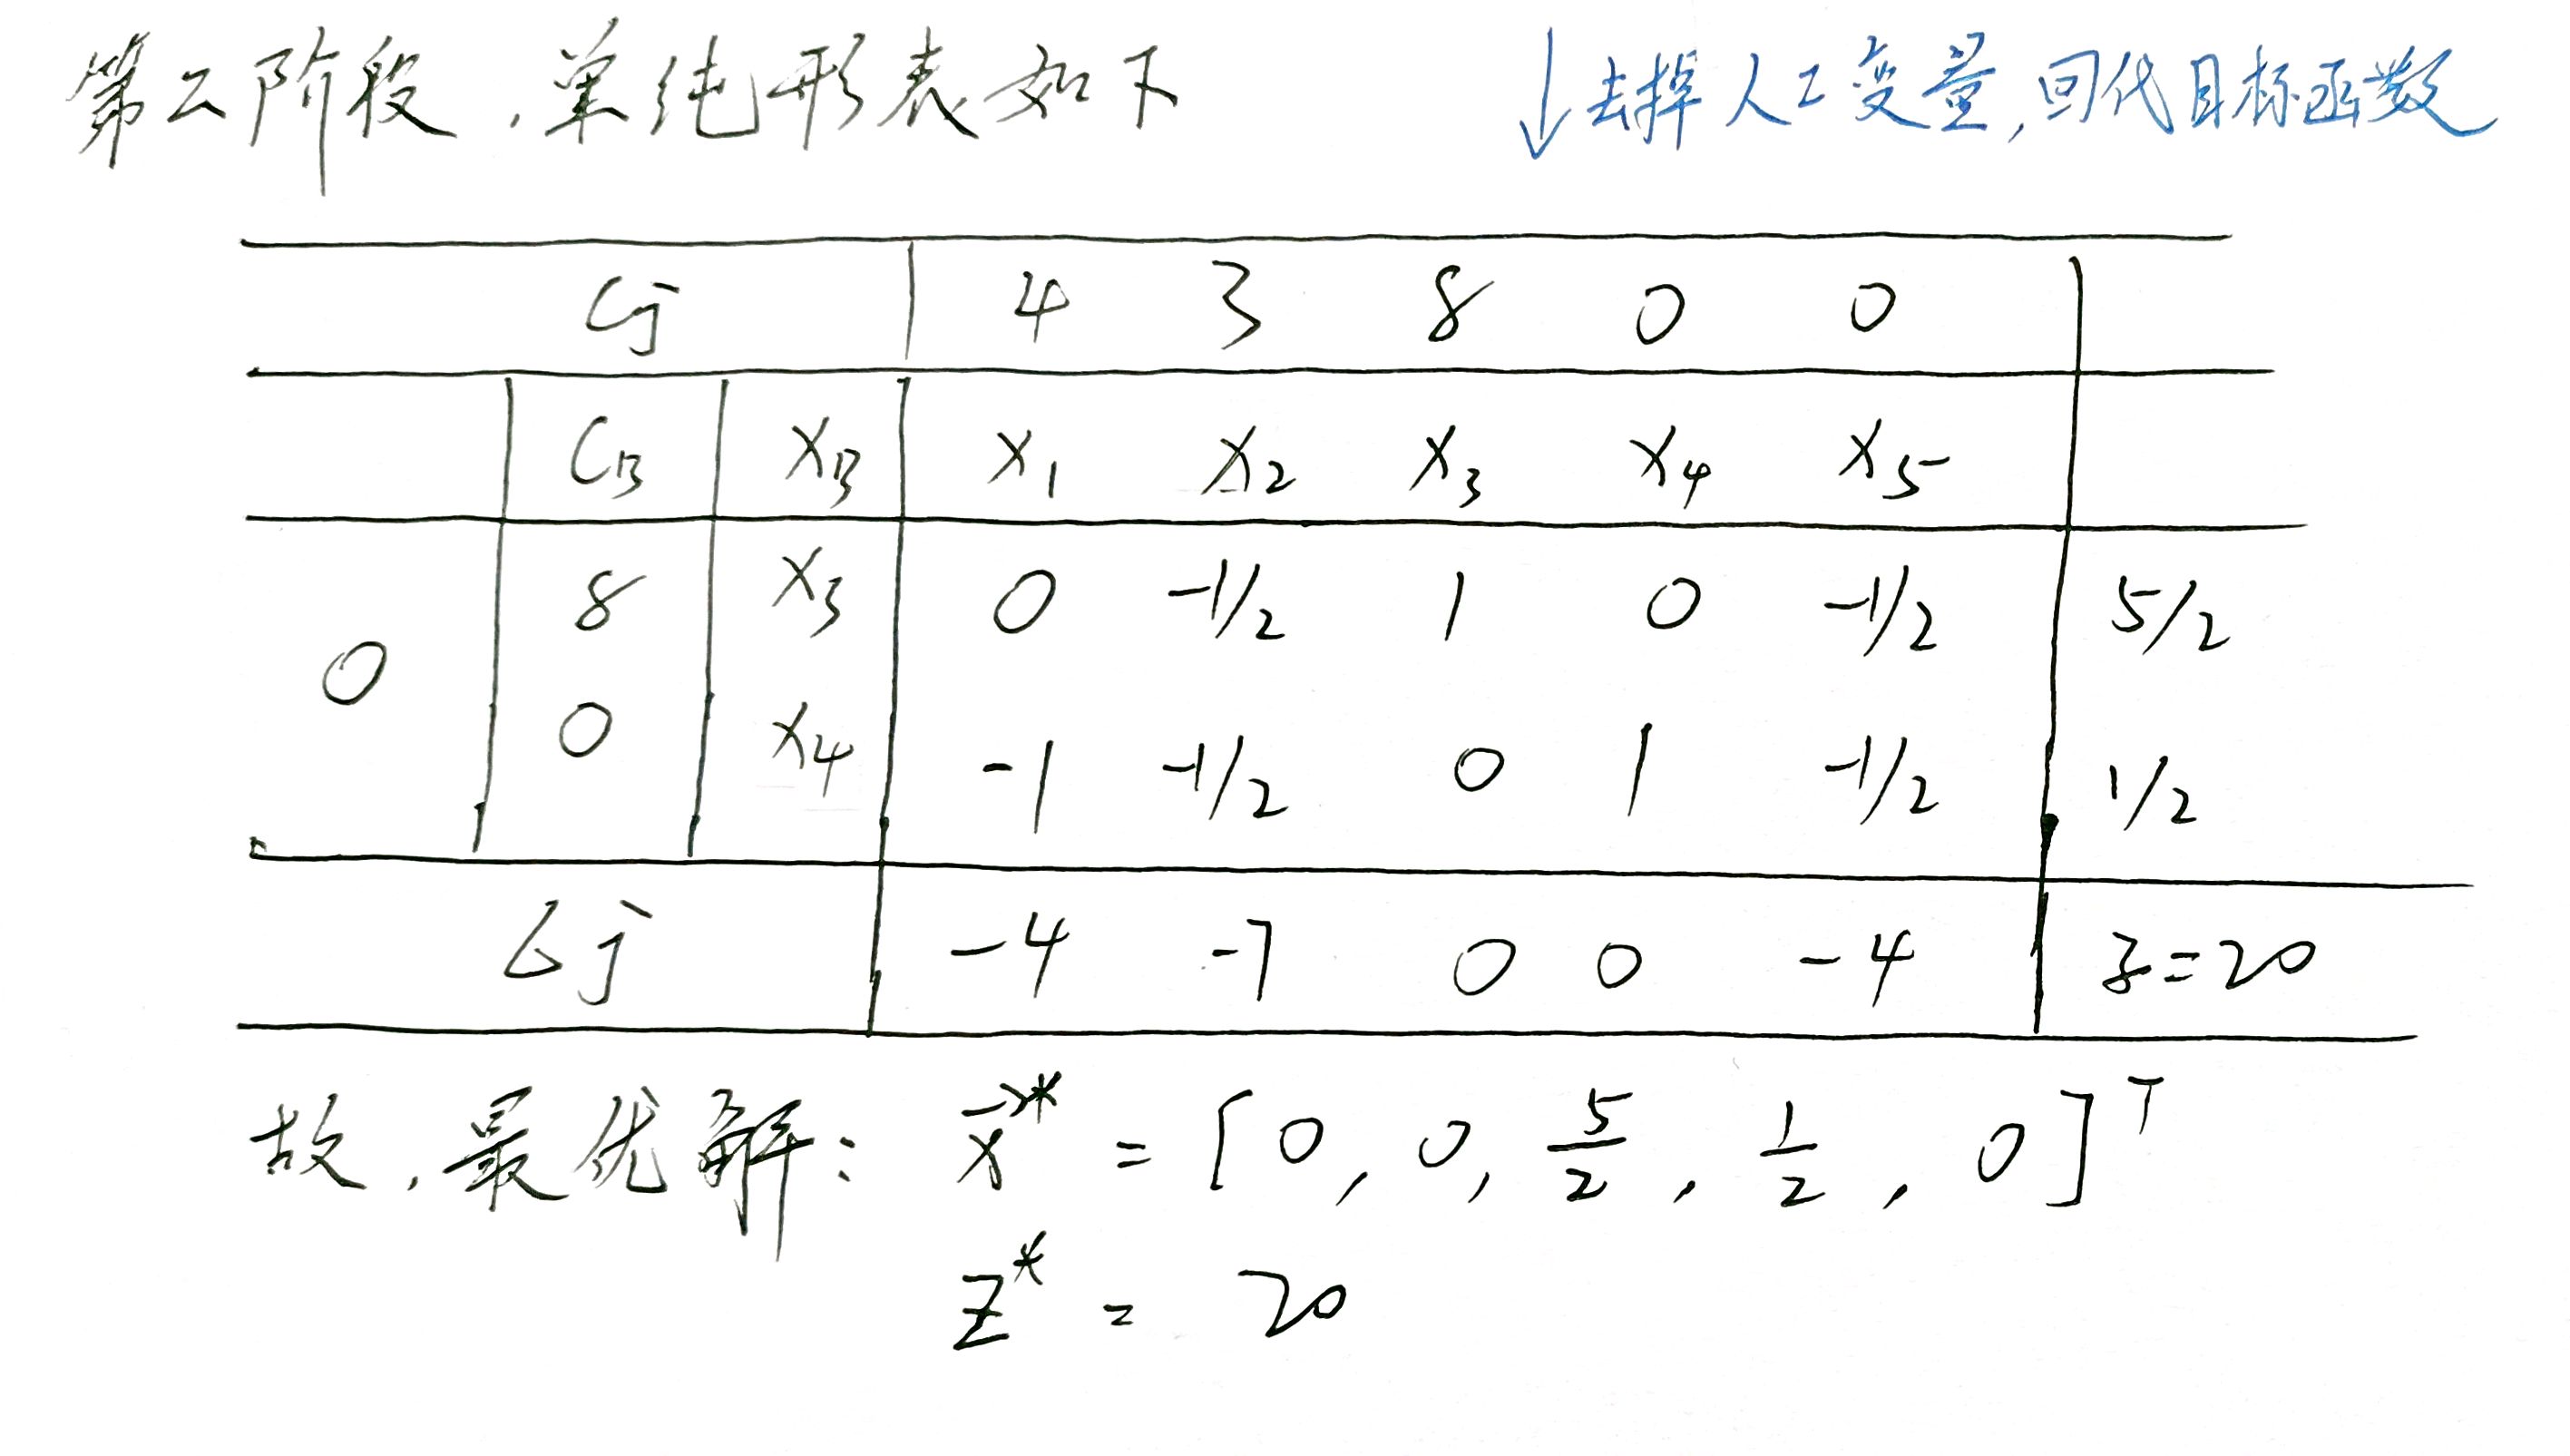 第二阶段，单纯形表如下
↓去掉人工变量，回代目标函数
Cj 4 3 8 0 0
CB XB x1 x2 x3 x4 x5
0 8 x3 0 -1/2 1 0 -1/2 5/2
0 x4 -1 -1/2 0 1 -1/2 1/2
δj -4 -7 0 0 -4 z=20
故，最优解： x⃗* = [0, 0, 5/2, 1/2, 0]ᵀ
Z* = 20